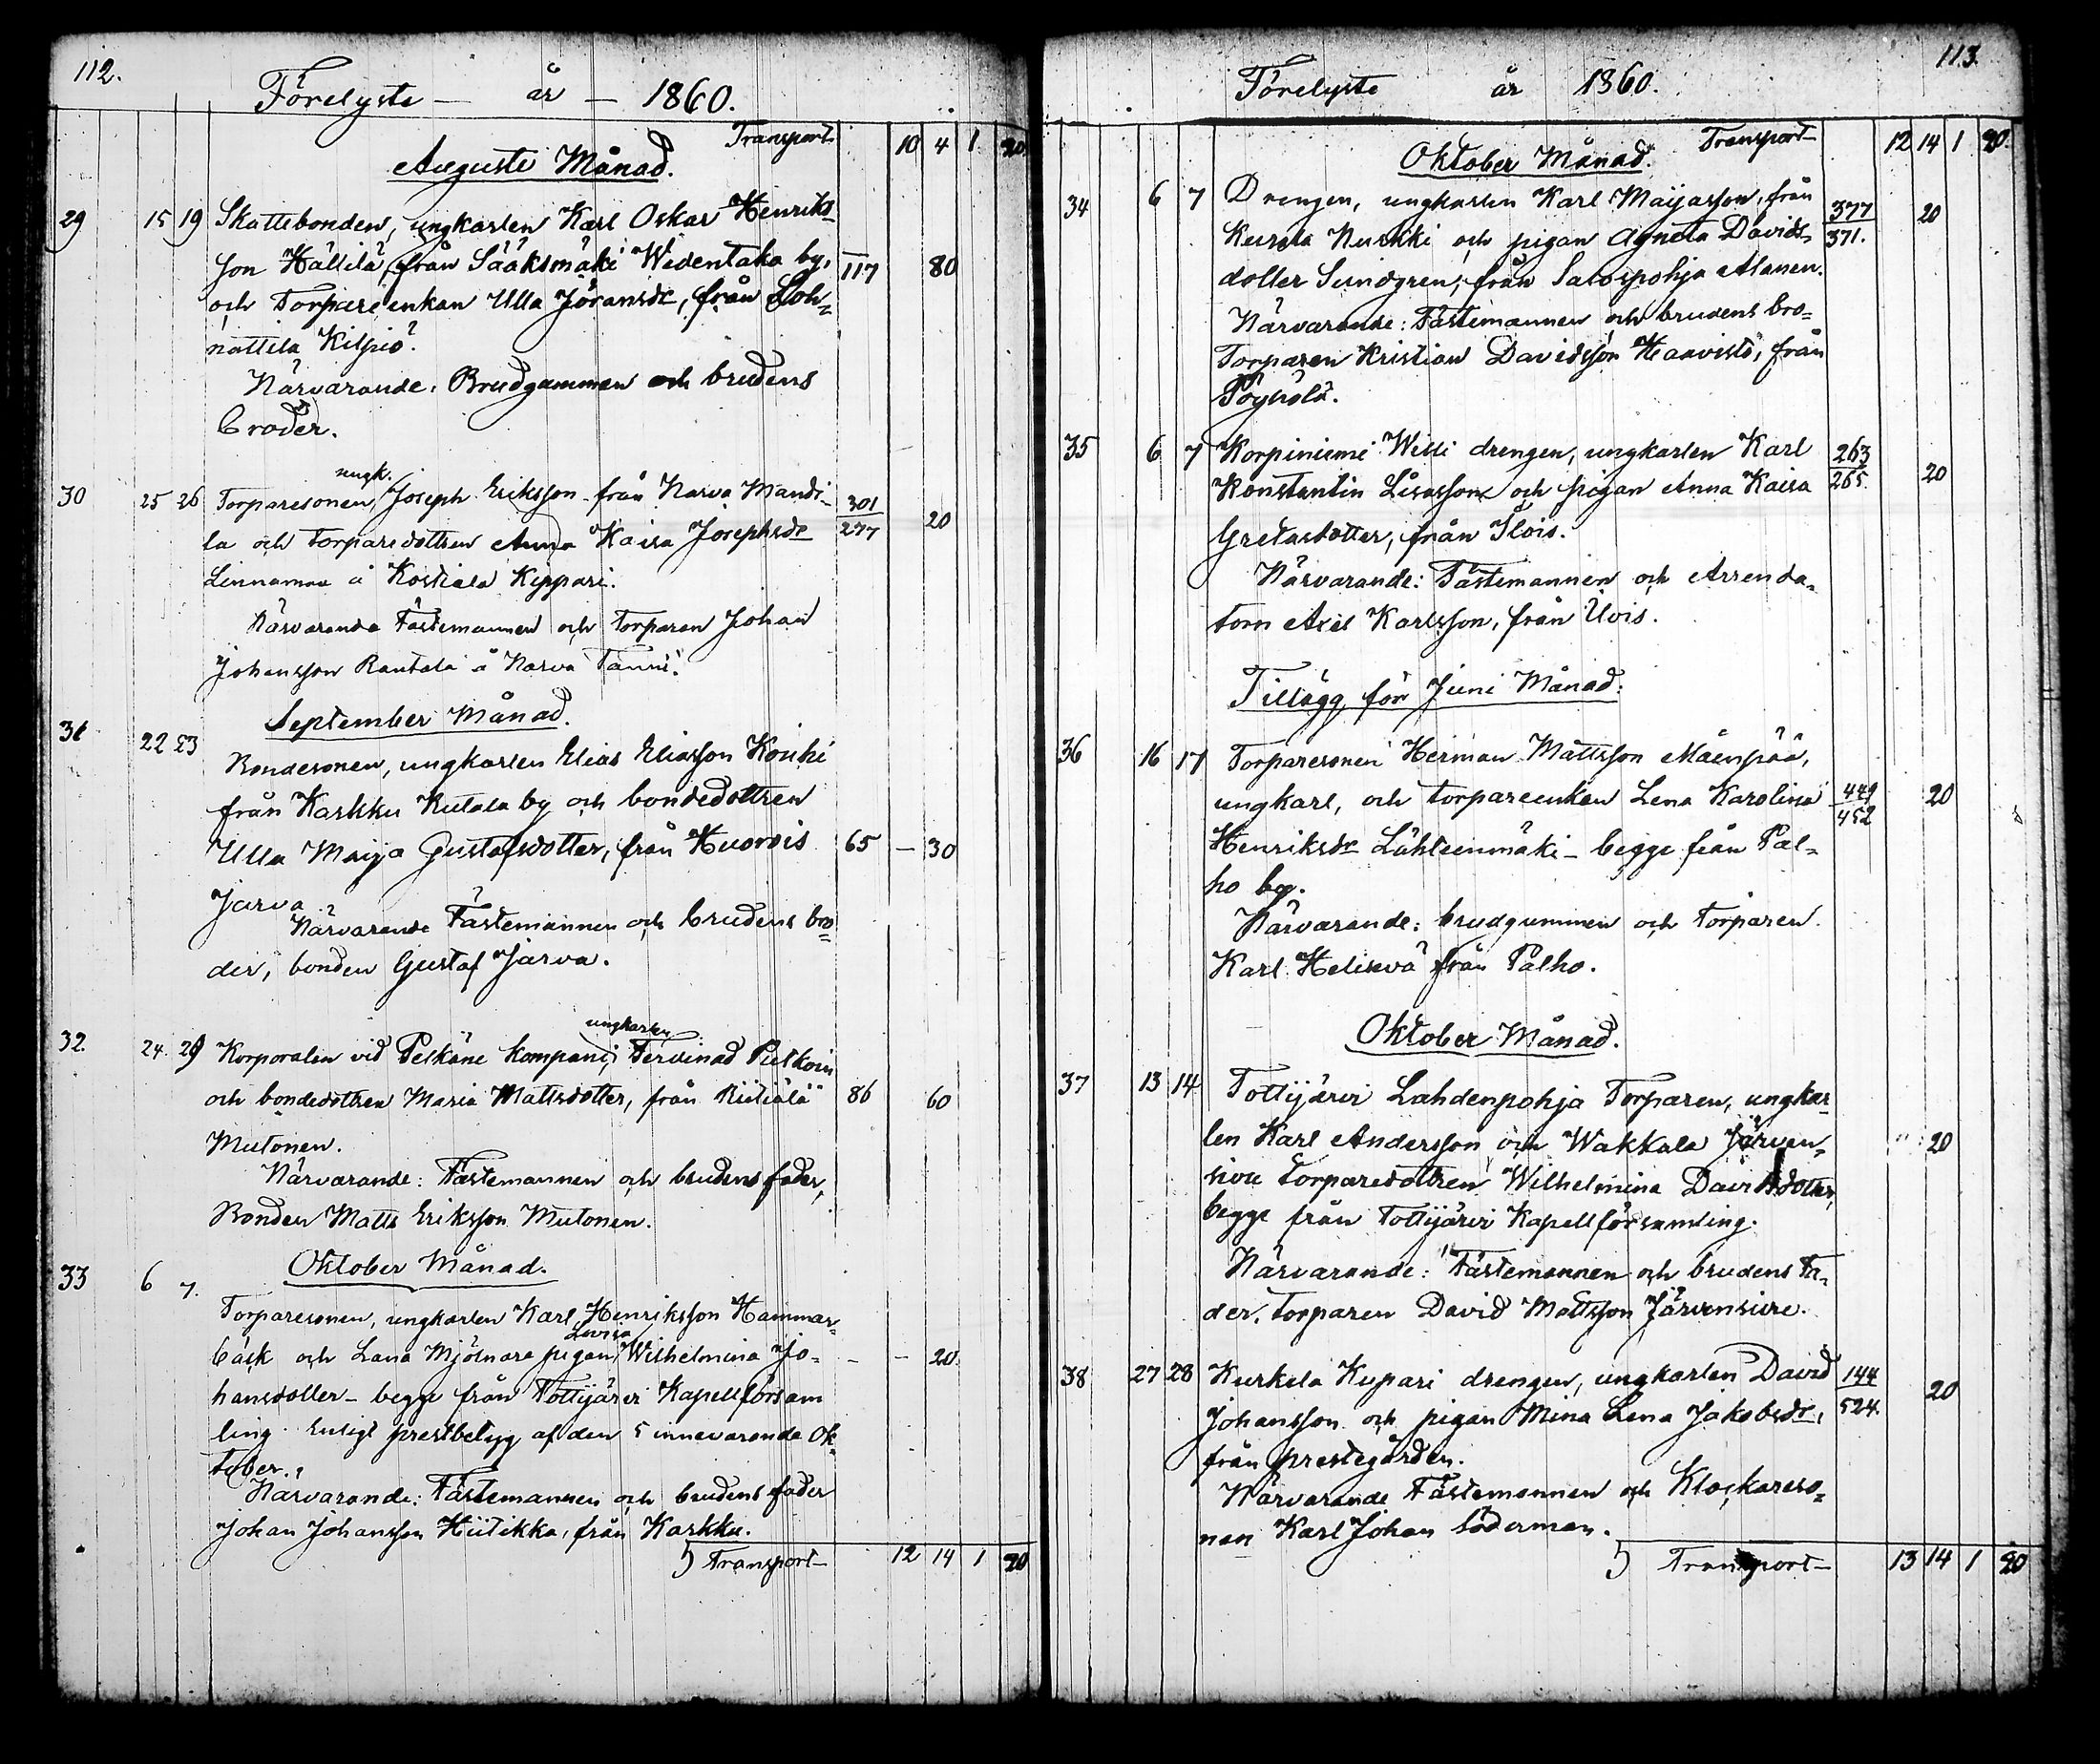 112.
Förelyste — år — 1860.
Transport 10 4 1 20
Augusti Månad.
29 15 19 Skattebonden, ungkarlen Karl Oskar Henriks-
son Hällilä, från Sääksmäki Widentaka by, 117 80
och Torpareenkan Ulla Jöransdr, från Loh-
nattila Kilpiö.
Närvarande: Brudgumman och brudens
broder.
ungk.
30 25 26 Torparesonen, Joseph Eriksson från Narva Mandi- 301
la och torparedottren Anna Kaisa Josephsdr 277 20
Linnamaa å Kostiala Keppari.
Närvarande Fästemannen och torparen Johan
Johansson Rantala å Narva Tanni.
September Månad.
31 22 23
Bondesonen, ungkarlen Elias Eliasson Kouhi
från Karkku Rutala by och bondedottren
Ulla Maija Gustafsdotter, från Huorois 65 — 30
Jarva
Närvarande Fästemannen och brudens bro=
der, bonden Gustaf Jarva.
ungkarlen
32. 24. 29 Korporalen vid Pelkäne kompani, Ferdinad Pulkoin
och bondedottren Maria Mattsdotter, från Riitiälä 86 60
Mutonen.
Närvarande: Fästemannen och brudens fader,
Bonden Matts Eriksson Mutonen.
Oktober Månad.
33 6 7.
Torparesonen, ungkarlen Karl Henriksson Hammar-
Lovisa
bäck och Lana Mjölnare pigan Wilhelmina Jo= — — 20.
hansdotter — begge från Tottijärvi Kapellförsam
ling. Enligt prestbetyg af den 5 innevarande Ok-
tober.
Närvarande: Fästemannen och brudens fader
Johan Johansson Hiitikka, från Karkku.
Transport — 12 14 1 20
113.
Förelyste år 1860.
Transport — 12 14 1 20.
Oktober Månad.
34 6 7 Drengen, ungkarlen Karl Maijasson, från 377 20
Kurela Nurkki och pigan Agneta Davids- 371.
dotter Sundgren, från Salospohja Alanen.
Närvarande: Fästemannen och brudens bro=
Torparen Kristian Davidsson Haavisto, från
Pöyhölä.
35 6 7 Korpiniemi Willi drengen, ungkarlen Karl 263
Konstantin Lisasson och pigan Anna Kaisa 265. 20
Gretasdotter, från Ilois.
Närvarande: Fästemannen och Arrenda-
torn Axel Karlsson, från Ilois.
Tillägg för Juni Månad:
36 16 17 Torparesonen Herman Mattsson Mäenpää,
ungkarl, och torpareenkan Lena Karolina 449 20
Henriksdr Lähteenmäki — begge från Pal- 452
ho by.
Närvarande: brudgummen och Torparen
Karl Helisevä från Palho.
Oktober Månad.
37 13 14 Tottijärvi Lahdenpohja Torparen, ungkar-
len Karl Andersson och Wakkala Järven- " 20
sivu torparedottren Wilhelmina Davidsdotter,
begge från Tottijärvi Kapellförsamling.
Närvarande: Fästemannen och brudens Fa-
der, torparen David Mattsson Järvensivu.
38 27 28 Kurkela Kupari drengen, ungkarlen David 144
Johansson och pigan Mina Lena Jakobsdr, 524. 20
från prestegården.
Närvarande Fästemannen och Klockareso-
nen Karl Johan Söderman.
Transport — 13 14 1 20